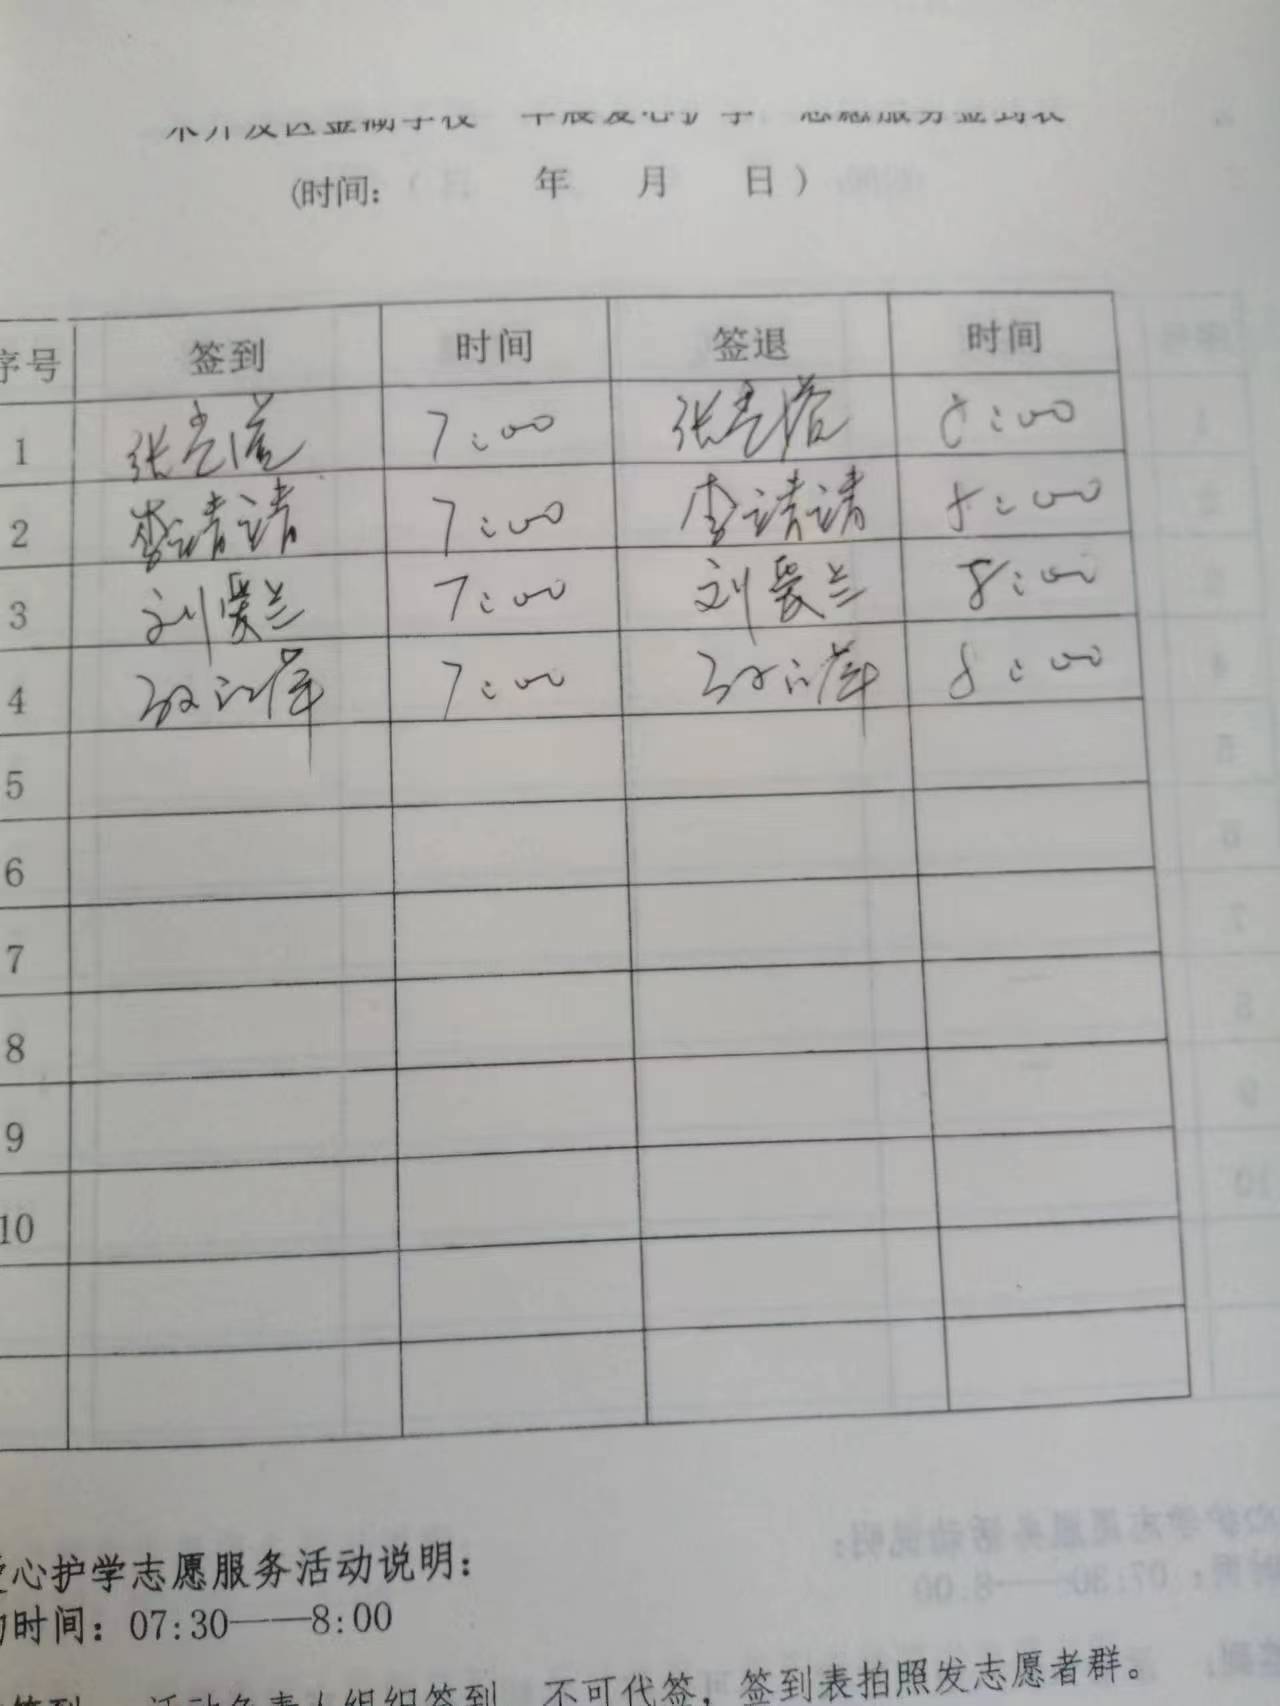 (时间: 年 月 日)
序号 签到 时间 签退 时间
1 张 7:00 张 8:00
2 李请请 7:00 李请请 8:00
3 刘爱兰 7:00 刘爱兰 8:00
4 7:00 8:00
5
6
7
8
9
10
爱心护学志愿服务活动说明:
动时间: 07:30——8:00
签到 活动负责人组织签到 不可代签, 签到表拍照发志愿者群。